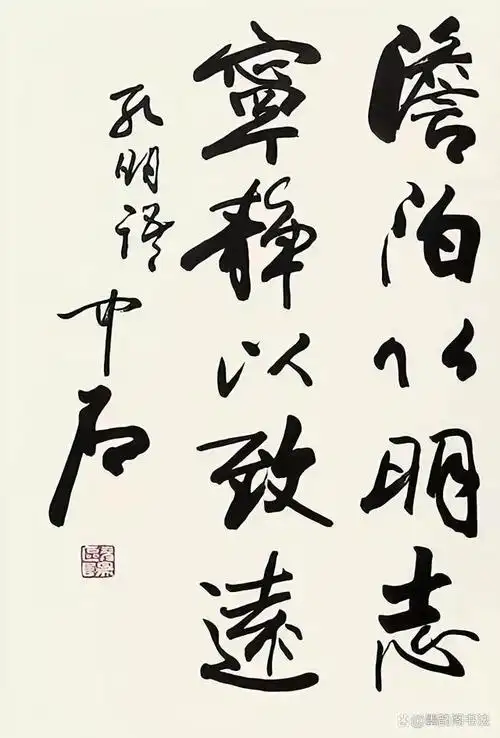 澹泊以明志
寧静以致遠
孔明語 中石
@墨韵阁书法